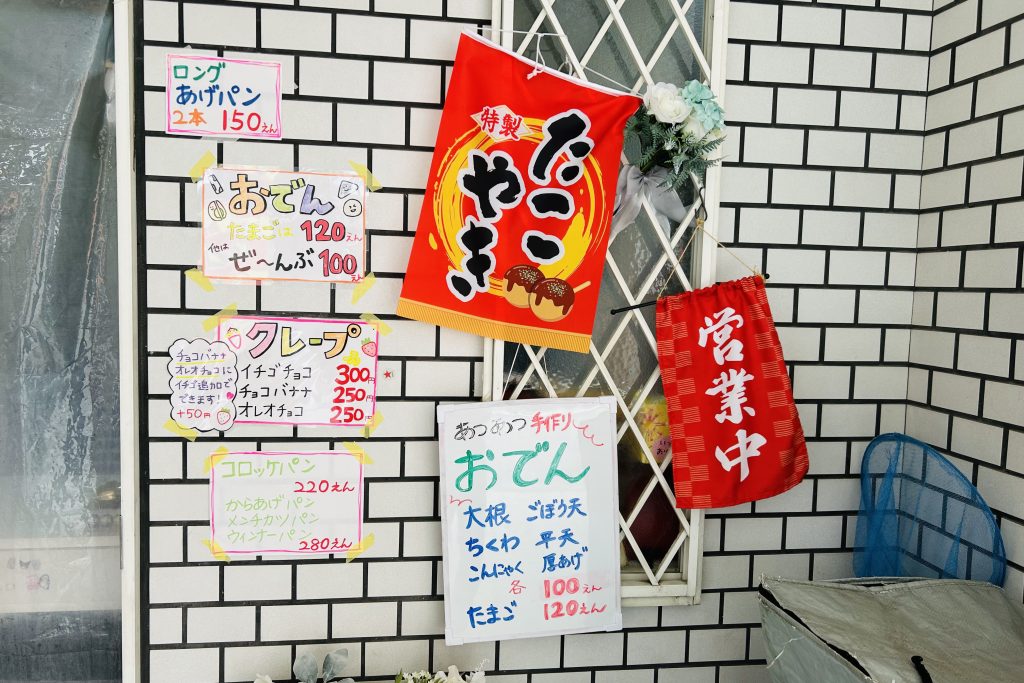 ロング
あげパン
2本 150えん
おでん
たまごは 120えん
他は ぜ〜んぶ 100えん
クレープ
イチゴチョコ 300円
チョコバナナ 250円
オレオチョコ 250円
チョコバナナ
オレオチョコに
イチゴ追加で
できます!
+50円
コロッケパン
220えん
からあげパン
メンチカツパン
ウィンナーパン
280えん
特製
たこ
やき
あつあつ 手作り
おでん
大根 ごぼう天
ちくわ 平天
こんにゃく 厚あげ
各 100えん
たまご 120えん
営業中